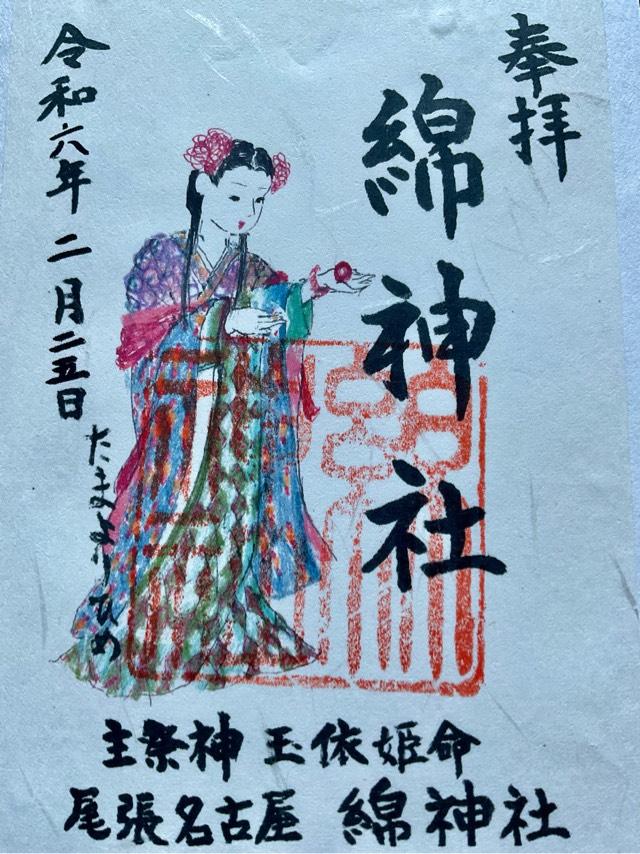 奉拝
綿神社
令和六年二月二五日
たまよりひめ
主祭神 玉依姫命
尾張名古屋 綿神社